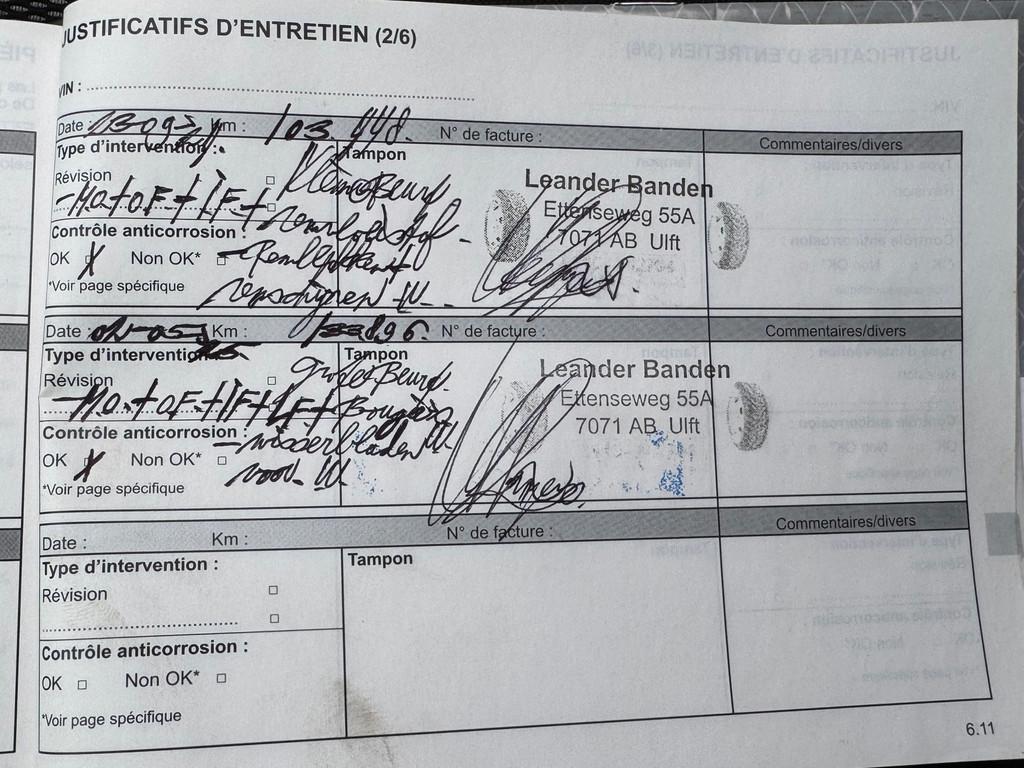 JUSTIFICATIFS D'ENTRETIEN (2/6)
VIN :
Date : Km : 103.448. N° de facture : Commentaires/divers
Type d'intervention : Tampon
Révision Kleine Beurt
- Mo + oF + IF +
Contrôle anticorrosion : remvloeistof -
OK X Non OK*
*Voir page spécifique
Leander Banden
Ettenseweg 55A
7071 AB Ulft
Date : Km : N° de facture : Commentaires/divers
Type d'intervention Tampon
Révision grote Beurt.
- Mo + oF + IF + LF + Bougies
Contrôle anticorrosion : - wisserbladen
OK X Non OK* voor
*Voir page spécifique
Leander Banden
Ettenseweg 55A
7071 AB Ulft
Date : Km : N° de facture : Commentaires/divers
Type d'intervention : Tampon
Révision
Contrôle anticorrosion :
OK Non OK*
*Voir page spécifique
6.11